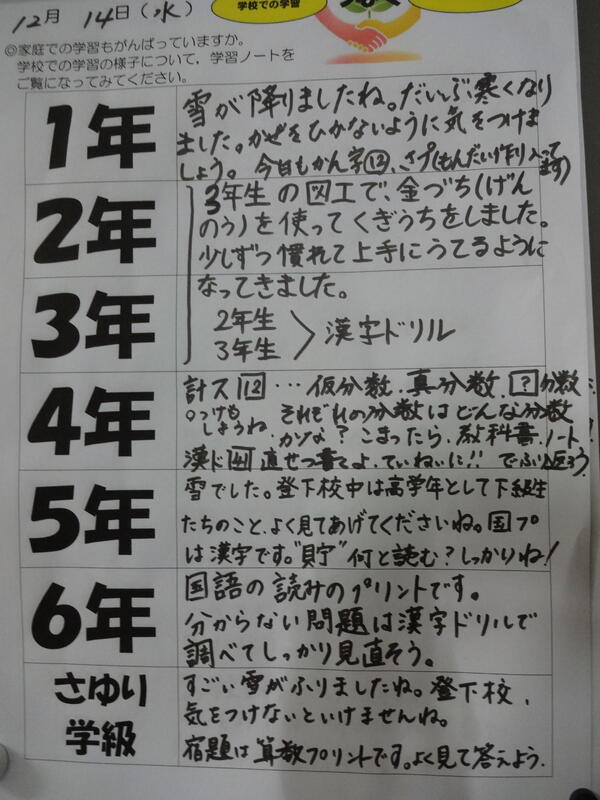 学校での学習
12月 14日(水)
◎家庭での学習もがんばっていますか。
学校での学習の様子について，学習ノートを
ご覧になってみてください。
1年
雪が降りましたね。だいぶ寒くなり
ました。かぜをひかないように気をつけま
しょう。 今日もかん字⑫、さプ(もんだい作り入ってます)
2年
3年生の図工で、金づち(げん
のう)を使ってくぎうちをしました。
少しずつ慣れて上手にうてるように
3年
なってきました。
2年生
3年生 〉漢字ドリル
4年
計ス12…仮分数、真分数、?分数…
○つけも
しょうね
それぞれの分数はどんな分数
かな？こまったら、教科書、ノート！
漢ド44直せつ書てよ、ていねいに!!
5年
雪でした。登下校中は高学年として下級生
たちのこと、よく見てあげてくださいね。国プ
は漢字です。"貯"何と読む？しっかりね！
6年
国語の読みのプリントです。
分からない問題は漢字ドリルで
調べてしっかり見直そう。
さゆり
学級
すごい雪がふりましたね。登下校、
気をつけないといけませんね。
宿題は算数プリントです。よく見て答えよう.